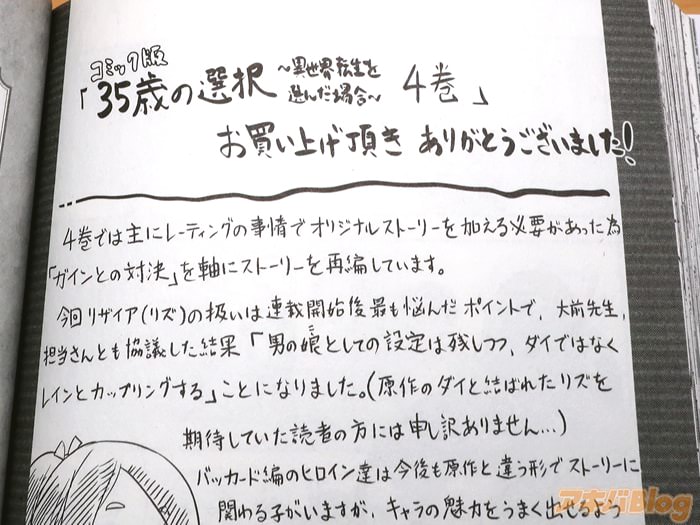 コミック版
「35歳の選択 ～異世界転生を選んだ場合～ 4巻」
お買い上げ頂き ありがとうございました!
4巻では主にレーティングの事情でオリジナルストーリーを加える必要があった為
「ガインとの対決」を軸にストーリーを再編しています。
今回リザイア(リズ)の扱いは連載開始後最も悩んだポイントで、大前先生、
担当さんとも協議した結果「男の娘としての設定は残しつつ、ダイではなく
レインとカップリングする」ことになりました。(原作のダイと結ばれたリズを
期待していた読者の方には申し訳ありません…)
バッカード編のヒロイン達は今後も原作と違う形でストーリーに
関わる子がいますが、キャラの魅力をうまく出せるよう
アキバBlog